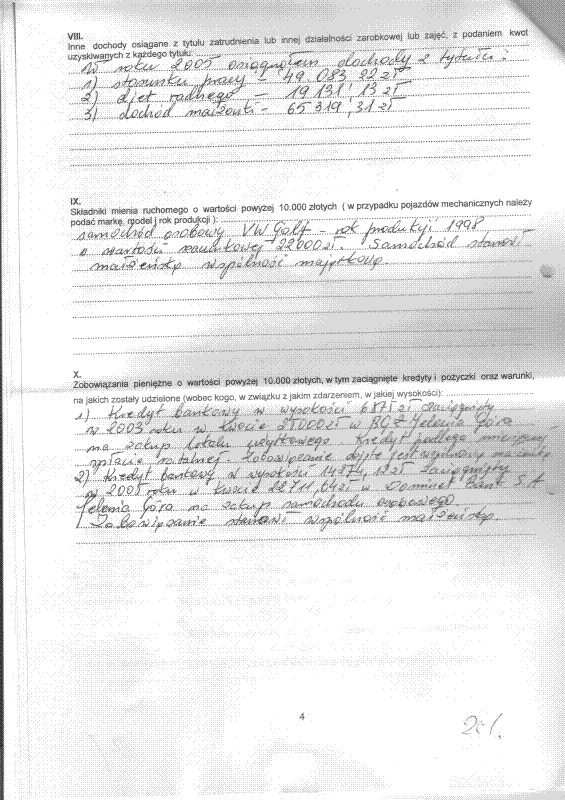 VIII.
Inne dochody osiągane z tytułu zatrudnienia lub innej działalności zarobkowej lub zajęć, z podaniem kwot
uzyskiwanych z każdego tytułu:
W roku 2005 osiągnąłem dochody z tytułu:
1) stosunku pracy – 49.083,22 zł
2) diet radnego – 19.131,13 zł
3) dochód małżonki – 65 319,31 zł
IX.
Składniki mienia ruchomego o wartości powyżej 10.000 złotych ( w przypadku pojazdów mechanicznych należy
podać markę, model i rok produkcji ):
samochód osobowy VW Golf – rok produkcji 1998
o wartości rachunkowej 22000 zł. Samochód stanowi
małżeńską wspólność majątkową.
X.
Zobowiązania pieniężne o wartości powyżej 10.000 złotych, w tym zaciągnięte kredyty i pożyczki oraz warunki,
na jakich zostały udzielone (wobec kogo, w związku z jakim zdarzeniem, w jakiej wysokości):
1) Kredyt bankowy w wysokości 6875 zł zaciągnięty
w 2003 roku w kwocie 25000 zł w BGŻ Jelenia Góra
na zakup lokalu użytkowego. Kredyt podlega
spłacie ratalnej. Zobowiązanie jest
2) Kredyt bankowy w wysokości 14874,12 zł zaciągnięty
w 2005 roku w kwocie 22711,64 zł w Dominet Bank S.A
Jelenia Góra na zakup samochodu osobowego
Zobowiązanie stanowi wspólność małżeńską.
4